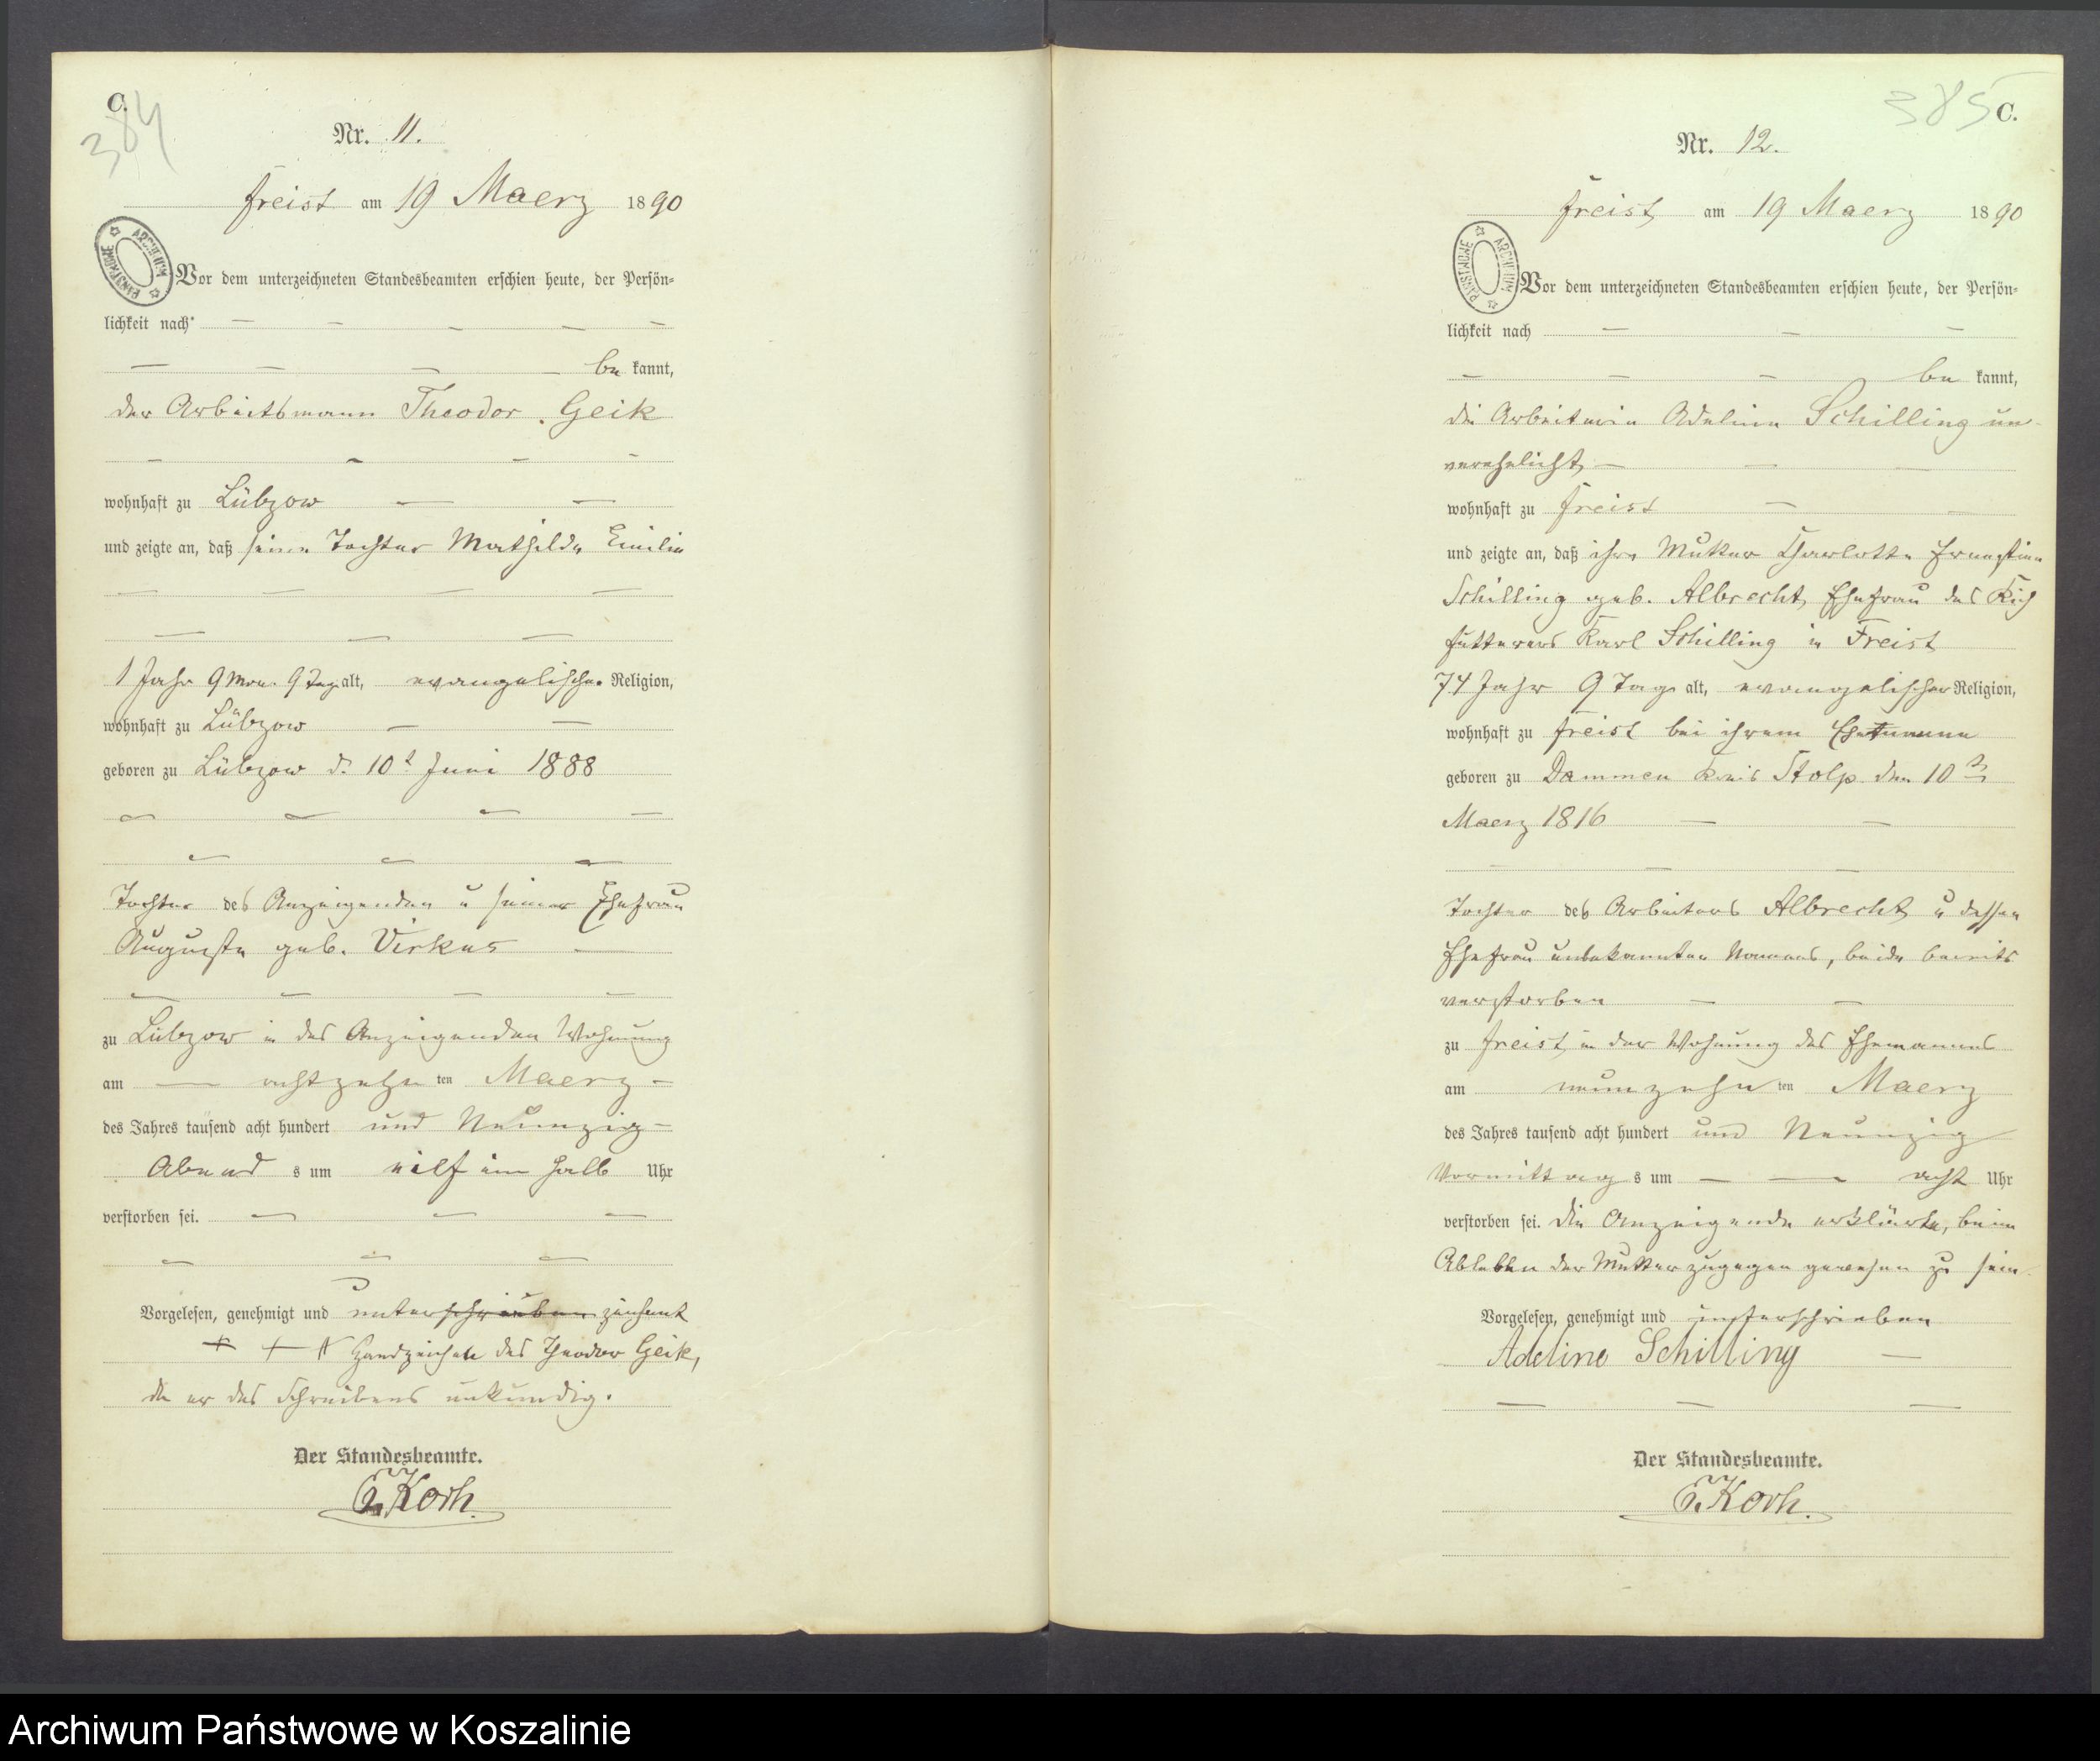 C.
384
Nr. 11.
Freist am 19 Maerz 1890
ARCHIWUM PAŃSTWOWE
Vor dem unterzeichneten Standesbeamten erschien heute, der Persön-
lichkeit nach
be kannt,
der Arbeitsmann Theodor Geik
wohnhaft zu Lübzow
und zeigte an, daß seine Tochter Mathilde Emilie
1 Jahr 9 Mon. 9 Tag alt, evangelischer Religion,
wohnhaft zu Lübzow
geboren zu Lübzow d. 10t Juni 1888
Tochter des Anzeigenden u seiner Ehefrau
Auguste geb. Virkus
zu Lübzow in des Anzeigenden Wohnung
am achtzehn ten Maerz
des Jahres tausend acht hundert und Neunzig
Abend s um eilf ein halb Uhr
verstorben sei.
Vorgelesen, genehmigt und unterschrieben zeichent
+ + + Handzeichen des Theodor Geik,
da er des Schreibens unkundig.
Der Standesbeamte.
Koch.
385 C.
Nr. 12.
Freist am 19 Maerz 1890
ARCHIWUM PAŃSTWOWE
Vor dem unterzeichneten Standesbeamten erschien heute, der Persön-
lichkeit nach
be kannt,
die Arbeiterin Adeline Schilling un-
verehelicht
wohnhaft zu Freist
und zeigte an, daß ihre Mutter Charlotte Ernestine
Schilling geb. Albrecht, Ehefrau des
Karl Schilling in Freist
74 Jahr 9 Tage alt, evangelischer Religion,
wohnhaft zu Freist bei ihrem Ehemanne
geboren zu Dammen Kreis Stolp den 10ten
Maerz 1816
Tochter des Arbeiters Albrecht u dessen
Ehefrau unbekannten Namens, beide bereits
verstorben
zu Freist in der Wohnung des Ehemannes
am neunzehn ten Maerz
des Jahres tausend acht hundert und Neunzig
Vormittag s um acht Uhr
verstorben sei. Die Anzeigende erklärte, beim
Ableben der Mutter zugegen gewesen zu sein.
Vorgelesen, genehmigt und unterschrieben
Adeline Schilling
Der Standesbeamte.
Koch.
Archiwum Państwowe w Koszalinie